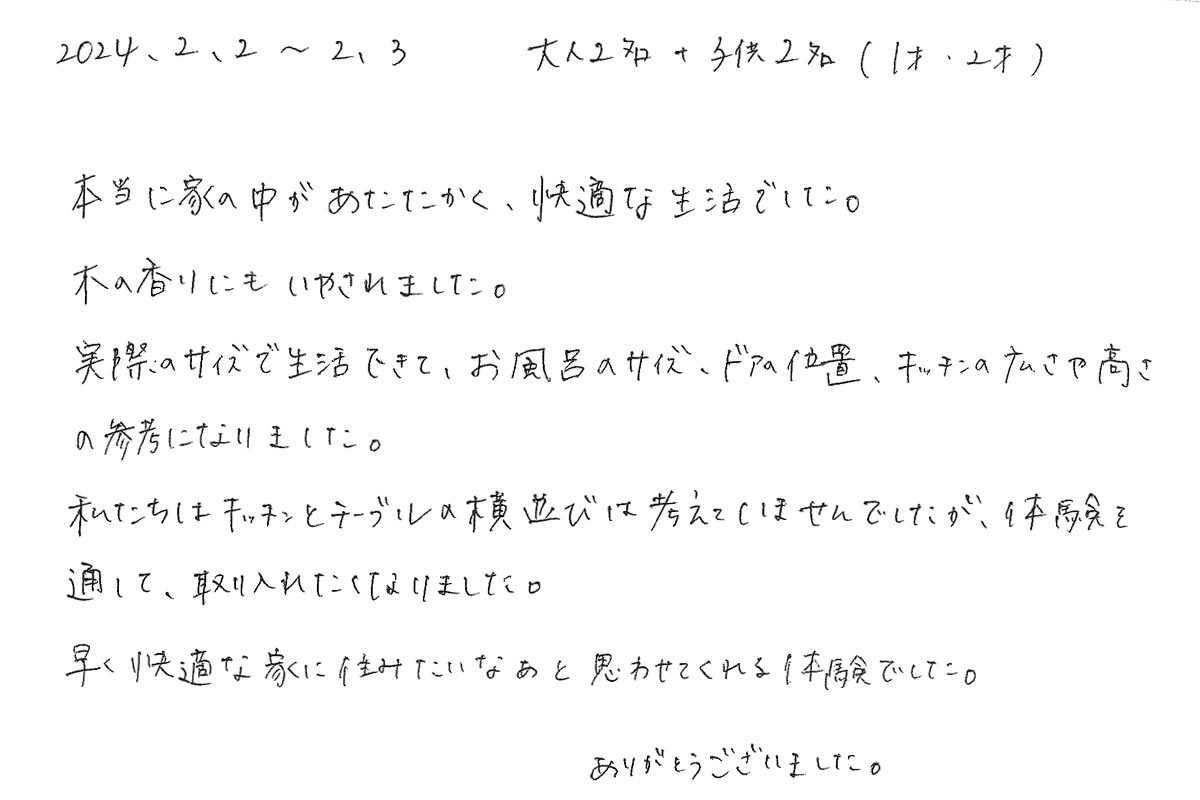 2024、2、2～2、3　大人2名＋子供2名(1才・2才)
本当に家の中があたたかく、快適な生活でした。
木の香りにもいやされました。
実際のサイズで生活できて、お風呂のサイズ、ドアの位置、キッチンの広さや高さ
の参考になりました。
私たちはキッチンとテーブルの横並びは考えていませんでしたが、体験を
通して、取り入れたくなりました。
早く快適な家に住みたいなぁと思わせてくれる体験でした。
ありがとうございました。